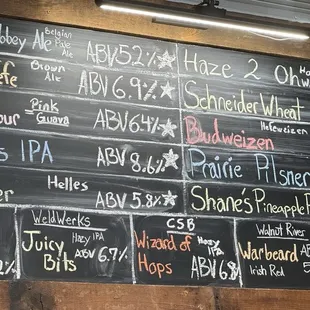 bbey Ale Belgian Pale Ale ABV 5.2%
Haze 2 Oh
Brown Ale ABV 6.9%
Schneider Wheat
Pink Guava ABV 6.4%
Budweizen Hefeweizen
IPA ABV 8.6%
Prairie Pilsner
Helles ABV 5.8%
Shane's Pineapple
WeldWerks
Juicy Bits Hazy IPA ABV 6.7%
CSB
Wizard of Hops Hazy IPA ABV 6.8
Walnut River
Warbeard
Irish Red